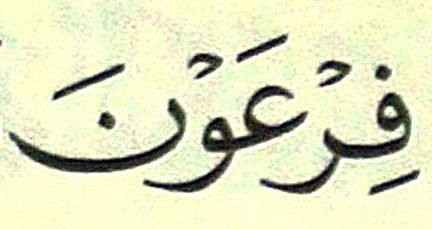 فِرْعَوْنَ